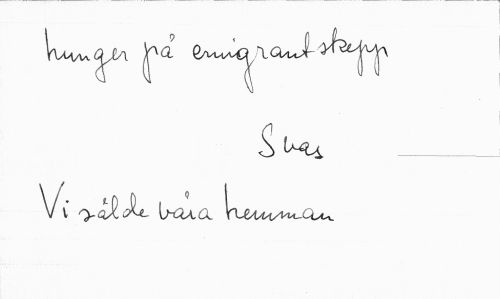 hunger på emigrantskepp
Svas
Vi sålde våra hemman